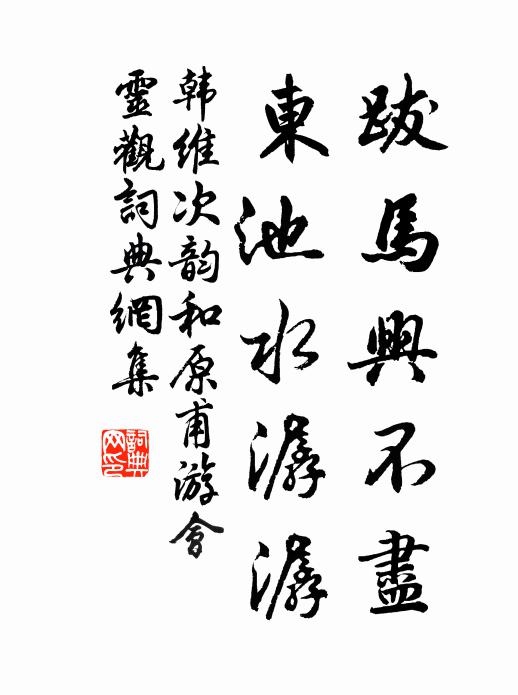 跋馬興不盡
東池水潺潺
韩維次韵和原甫游會
靈觀詞典網集
詞典
网印